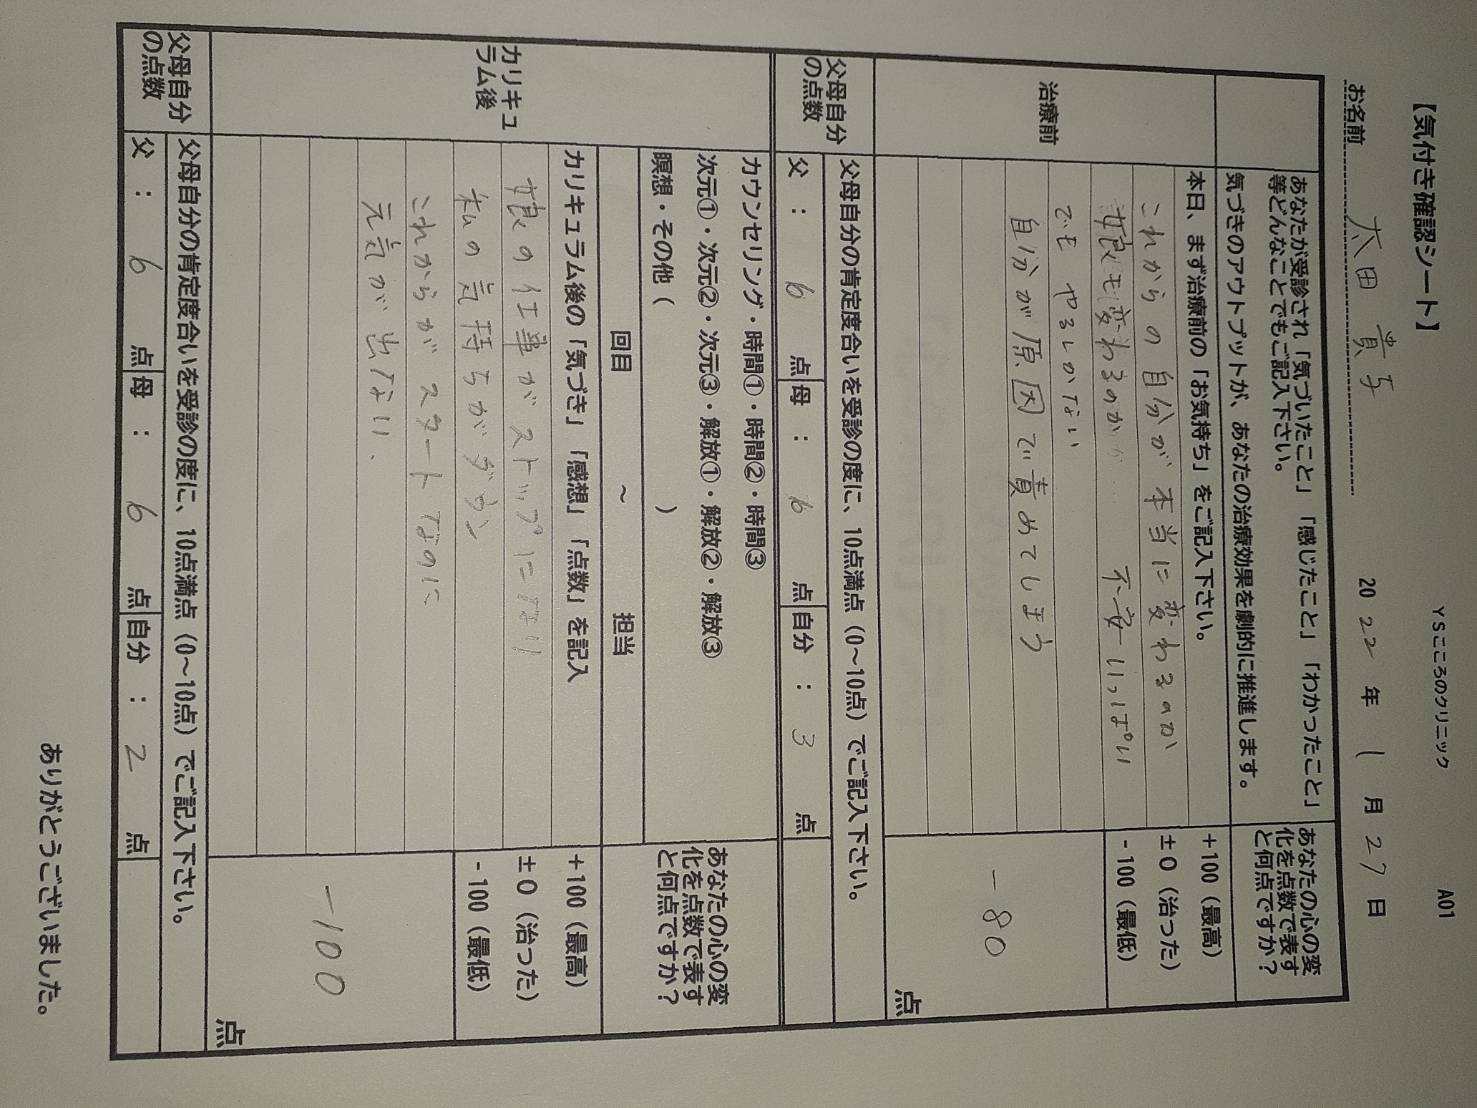 YSこころのクリニック A01
【気付き確認シート】
お名前 太田 貴子 2022年 1月 27日
あなたが受診され「気づいたこと」「感じたこと」「わかったこと」
等どんなことでもご記入下さい。
気づきのアウトプットが、あなたの治療効果を劇的に推進します。
あなたの心の変
化を点数で表す
と何点ですか？
治療前
本日、まず治療前の「お気持ち」をご記入下さい。
+100（最高）
±0（治った）
-100（最低）
これからの自分が本当に変わるのか
娘も変わるのか 不安いっぱい
でも やるしかない
自分が原因で責めてしまう
-80
点
父母自分
の点数
父母自分の肯定度合いを受診の度に、10点満点（0～10点）でご記入下さい。
父： 6 点 母： 6 点 自分： 3 点
カリキュ
ラム後
カウンセリング・時間①・時間②・時間③
次元①・次元②・次元③・解放①・解放②・解放③
瞑想・その他（ ）
回目 ～ 担当
あなたの心の変
化を点数で表す
と何点ですか？
カリキュラム後の「気づき」「感想」「点数」を記入
+100（最高）
±0（治った）
-100（最低）
娘の仕事がストップになり
私の気持ちがダウン
これからがスタートなのに
元気が出ない、
-100
点
父母自分
の点数
父母自分の肯定度合いを受診の度に、10点満点（0～10点）でご記入下さい。
父： 6 点 母： 6 点 自分： 2 点
ありがとうございました。